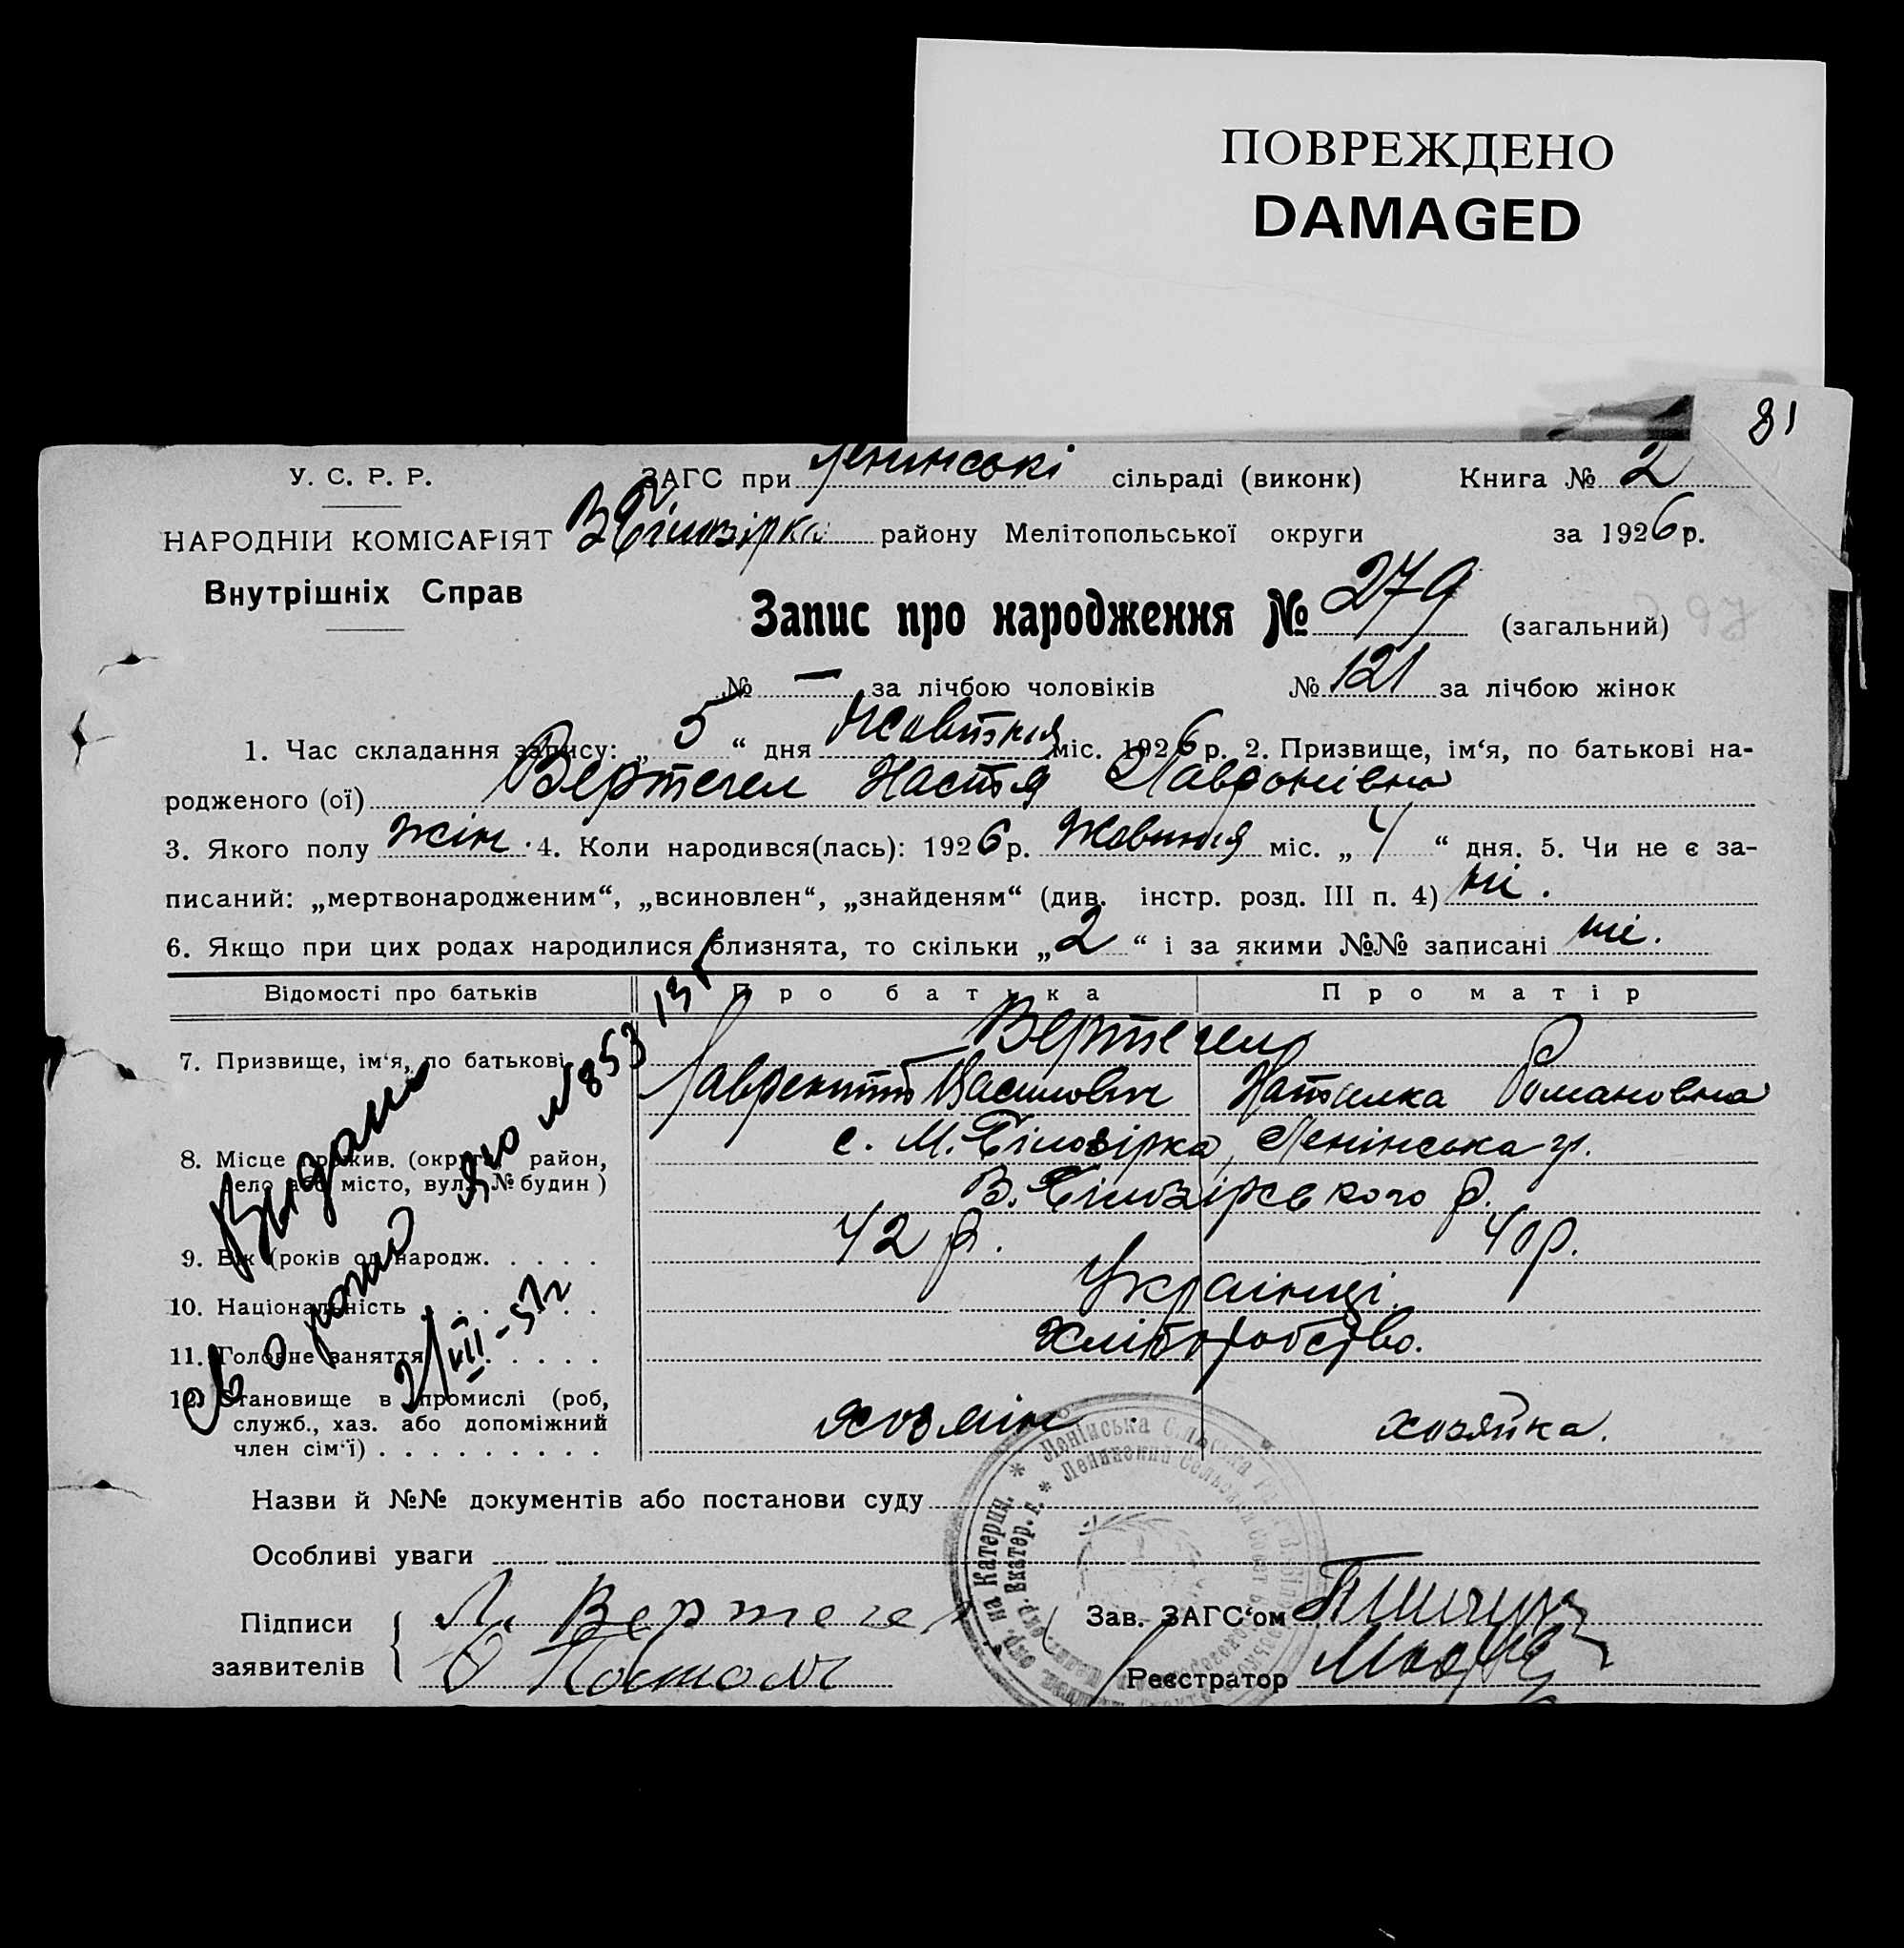 ПОВРЕЖДЕНО
DAMAGED
81
У. С. Р. Р.
ЗАГС при Ленинські сільраді (виконк) Книга № 2
НАРОДНІЙ КОМІСАРІЯТ
В Білозірка району Мелітопольської округи за 1926 р.
Внутрішніх Справ
Запис про народження № 279 (загальний)
№ — за лічбою чоловіків № 121 за лічбою жінок
1. Час складання запису: „ 5 “ дня Жовтня міс. 1926 р. 2. Призвище, ім‘я, по батькові на-
родженого (ої) Вертегел Настя Лавронівна
3. Якого полу жін. 4. Коли народився(лась): 1926 р. Жовтня міс. „ 4 “ дня. 5. Чи не є за-
писаний: „мертвонародженим“, „всиновлен“, „знайденям“ (див. інстр. розд. III п. 4) ні.
6. Якщо при цих родах народилися близнята, то скільки „ 2 “ і за якими №№ записані ні.
Відомості про батьків Про батька Про матір
Вертегел
7. Призвище, ім‘я, по батькові
Лаврентий Василович Наталка Романовна
8. Місце прожив. (округа, район, село або місто, вул. № будин)
с. М. Білозірка, Ленінська
В. Білозірського р.
9. Вік (років од народж. 42 р. 40 р.
10. Національність Українці.
11. Головне заняття Хліборобство.
12. Становище в промислі (роб, служб., хаз. або допоміжний член сім‘ї)
хозяін хозяйка.
Видано
св о рожд ЯЮ № 853 13
2/VII-51г
Назви й №№ документів або постанови суду
Особливі уваги
Підписи
заявителів
Л. Вертегел
Зав. ЗАГС‘ом
Реєстратор
* Ленінська Сільська Рада
* Ленинский Сельский Совет
окр. на Катерин.
окр. Екатер. г.